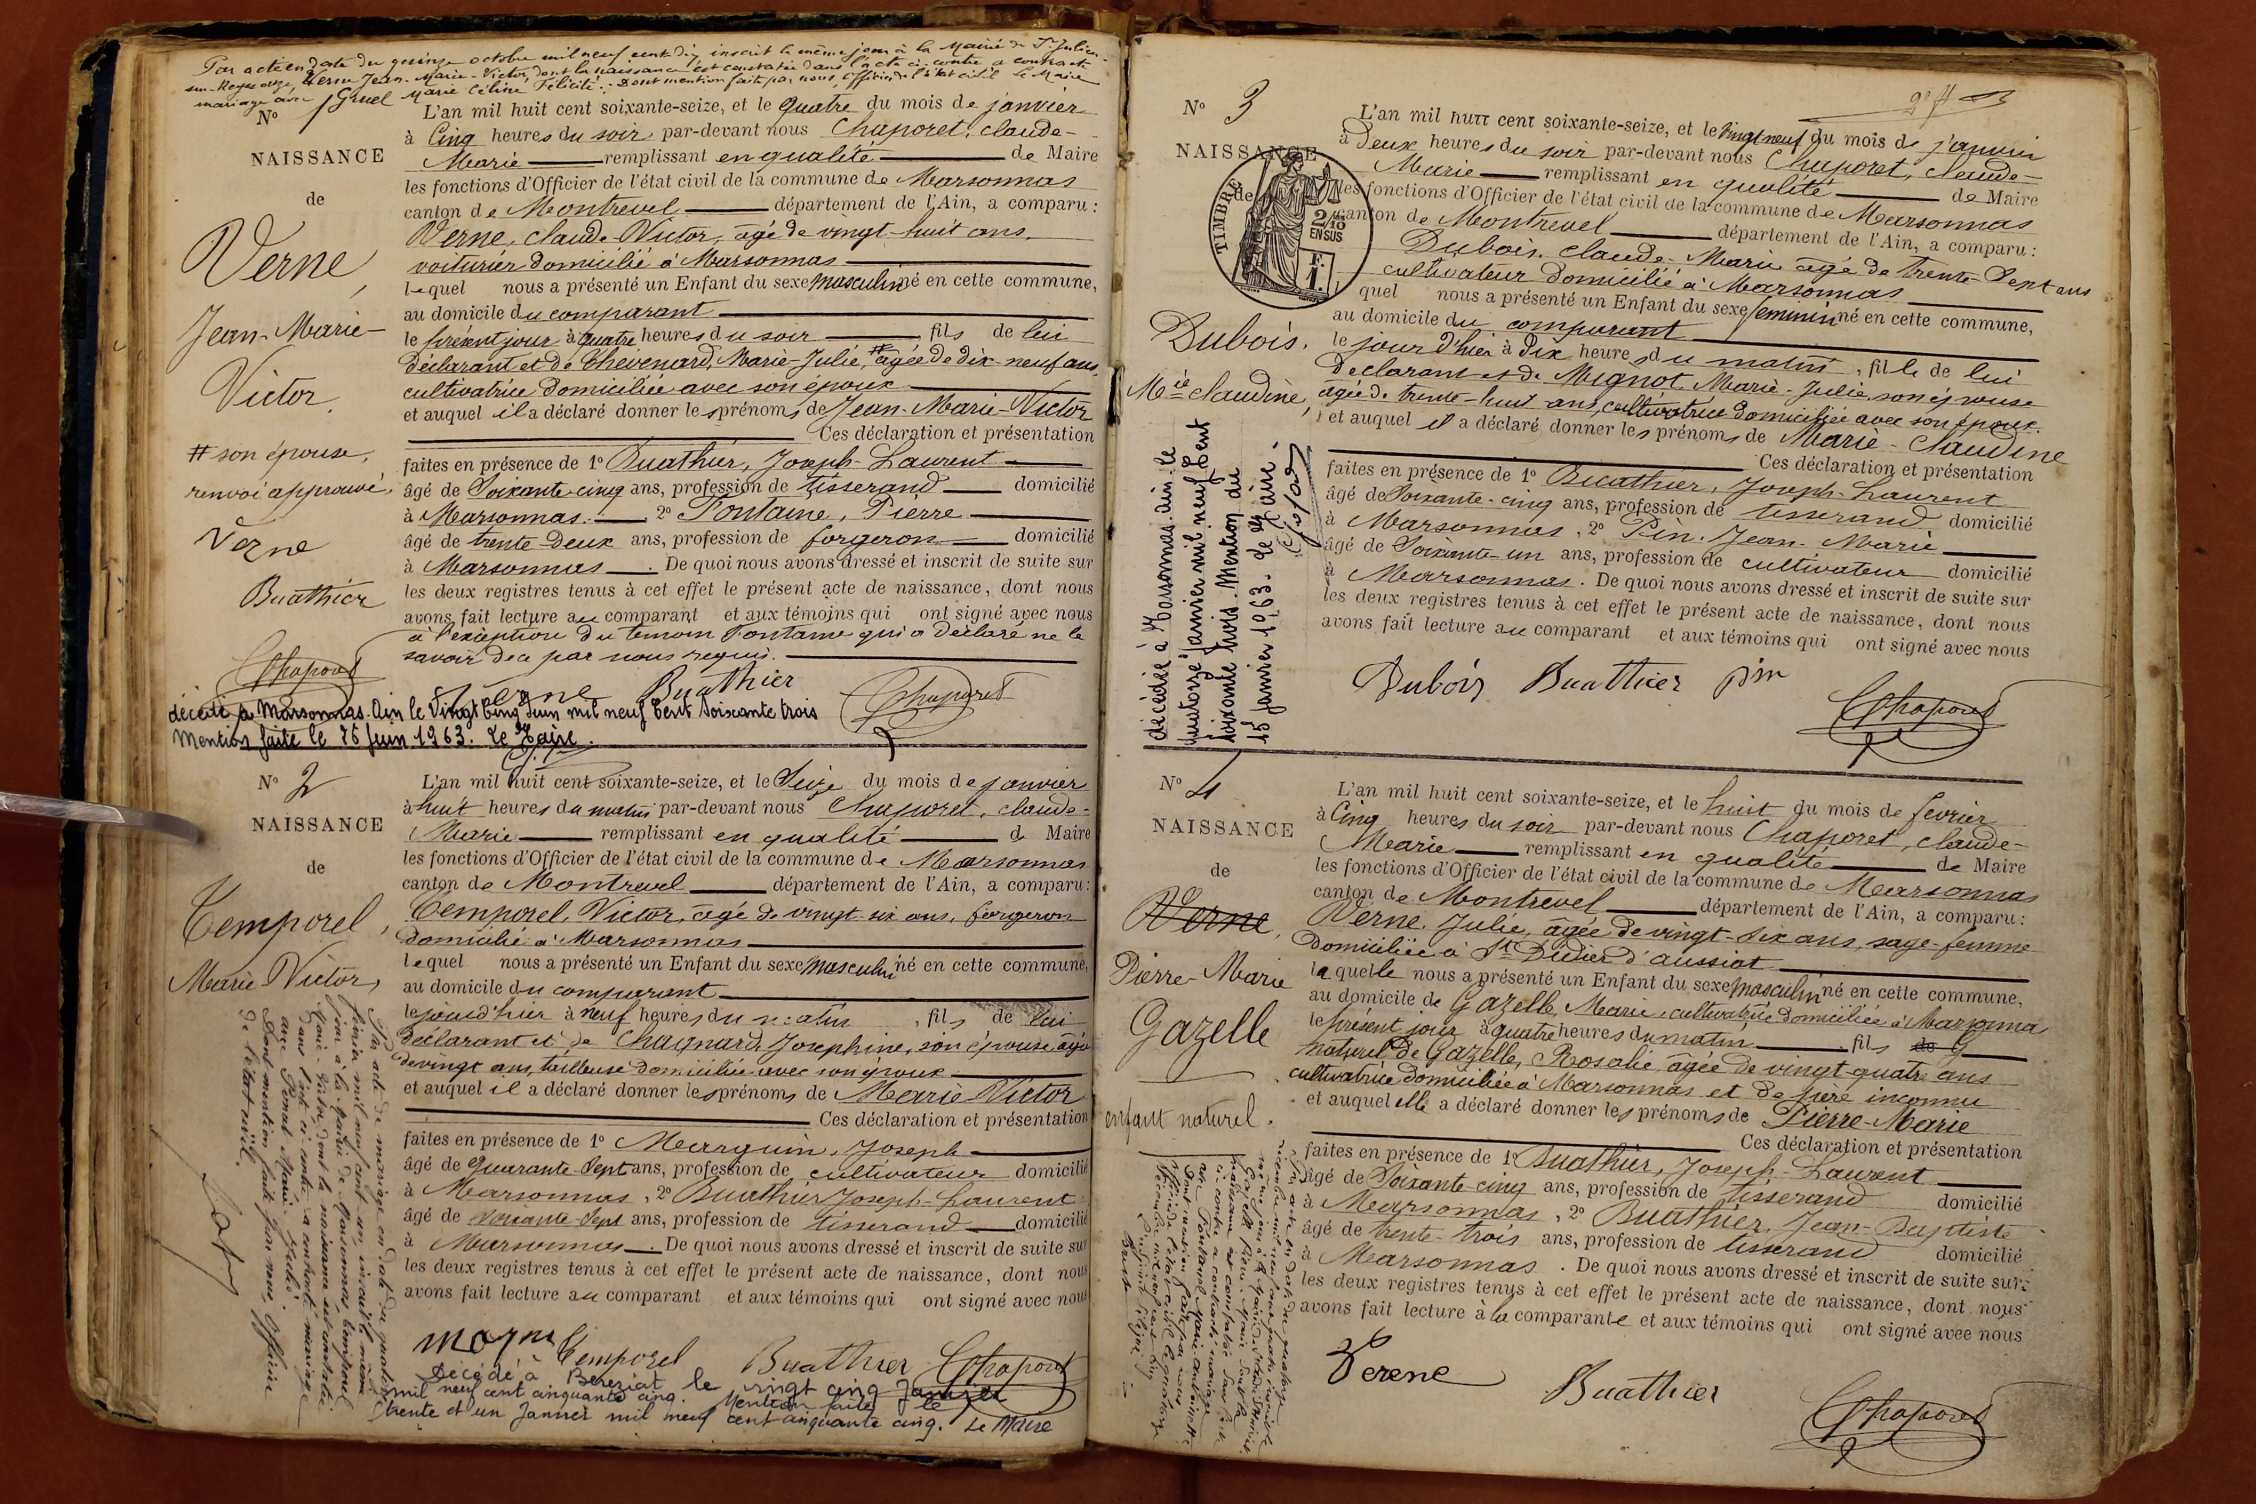 Par acte en date du quinze octobre mil neuf cent dix inscrit le même jour à la Mairie de St Julien-
sur-Reyssouze, Verne Jean-Marie-Victor, dont la naissance est constatée dans l'acte ci-contre a contracté
mariage avec Gruel Marie Céline Félicité. Dont mention faite par nous, Officier de l'état civil Le Maire
No 1
NAISSANCE
de
Verne,
Jean-Marie-
Victor.
# son épouse,
renvoi approuvé.
Verne
Buathier
Chaporet
L'an mil huit cent soixante-seize, et le quatre du mois de janvier
à Cinq heures du soir par-devant nous Chaporet, claude-
Marie remplissant en qualité de Maire
les fonctions d'Officier de l'état civil de la commune de Marsonnas
canton de Montrevel département de l'Ain, a comparu :
Verne, claude Victor, âgé de vingt-huit ans,
voiturier domicilié à Marsonnas
lequel nous a présenté un Enfant du sexe masculin né en cette commune,
au domicile du comparant
le présent jour à quatre heures du soir fils de lui
déclarant et de Thevenard, Marie-Julie, # âgée de dix-neuf ans,
cultivatrice domiciliée avec son époux
et auquel il a déclaré donner les prénoms de Jean-Marie-Victor
Ces déclaration et présentation
faites en présence de 1o Buathier, Joseph-Laurent
âgé de Soixante-cinq ans, profession de tisserand domicilié
à Marsonnas. 2o Fontaine, Pierre
âgé de trente-deux ans, profession de forgeron domicilié
à Marsonnas. De quoi nous avons dressé et inscrit de suite sur
les deux registres tenus à cet effet le présent acte de naissance, dont nous
avons fait lecture au comparant et aux témoins qui ont signé avec nous
à l'exception du témoin Fontaine qui a déclaré ne le
savoir de ce par nous requis.
Verne Buathier Chaporet
décédé à Marsonnas. Ain le Vingt Cinq Juin mil neuf Cent Soixante trois
Mention faite le 25 Juin 1963. Le Maire.
No 2
NAISSANCE
de
Temporel,
Marie Victor,
L'an mil huit cent soixante-seize, et le Seize du mois de janvier
à huit heures du matin par-devant nous Chaporet, claude-
Marie remplissant en qualité de Maire
les fonctions d'Officier de l'état civil de la commune de Marsonnas
canton de Montrevel département de l'Ain, a comparu :
Temporel, Victor, âgé de vingt-six ans, forgeron
domicilié à Marsonnas
lequel nous a présenté un Enfant du sexe masculin né en cette commune,
au domicile du comparant
le jour d'hier à neuf heures du matin, fils de lui
déclarant et de Chagnard, Josephine, son épouse, âgée
de vingt ans, tailleuse domiciliée avec son époux
et auquel il a déclaré donner les prénoms de Marie Victor
Ces déclaration et présentation
faites en présence de 1o Marguin, Joseph
âgé de quarante-Sept ans, profession de cultivateur domicilié
à Marsonnas, 2o Buathier Joseph-Laurent
âgé de Soixante-Sept ans, profession de tisserand domicilié
à Marsonnas. De quoi nous avons dressé et inscrit de suite sur
les deux registres tenus à cet effet le présent acte de naissance, dont nous
avons fait lecture au comparant et aux témoins qui ont signé avec nous
Temporel Buathier Chaporet
Par acte de mariage en date du quatorze
février mil neuf cent un, inscrit le même
jour à la Mairie de Marsonnas, Temporel
Marie-Victor, dont la naissance est constatée
dans l'acte ci-contre a contracté mariage
avec
Dont mention faite par nous, Officier
de l'état civil.
Décédé à Béréziat le vingt cinq Janvier
mil neuf cent cinquante cinq. Mention faite le
trente et un Janvier mil neuf cent cinquante cinq. Le Maire
No 3
NAISSANCE
de
TIMBRE
2/10
EN SUS
F.
1.
Dubois.
Mie claudine,
décédée à Marsonnas Ain le
quatorze janvier mil neuf Cent
Soixante trois. Mention du
15 Janvier 1963. Le Maire.
L'an mil huit cent soixante-seize, et le vingt neuf du mois de janvier
à Deux heures du soir par-devant nous Chaporet, claude-
Marie remplissant en qualité de Maire
les fonctions d'Officier de l'état civil de la commune de Marsonnas
canton de Montrevel département de l'Ain, a comparu :
Dubois, claude-Marie âgé de trente-Sept ans
cultivateur domicilié à Marsonnas
quel nous a présenté un Enfant du sexe féminin né en cette commune,
au domicile du comparant
le jour d'hier à Dix heures du matin, fille de lui
déclarant et de Mignot, Marie-Julie, son épouse
âgée de trente-huit ans, cultivatrice domiciliée avec son époux.
et auquel il a déclaré donner les prénoms de Marie-Claudine
Ces déclaration et présentation
faites en présence de 1o Buathier, Joseph-Laurent
âgé de Soixante-cinq ans, profession de tisserand domicilié
à Marsonnas, 2o Pin, Jean-Marie
âgé de Soixante-un ans, profession de cultivateur domicilié
à Marsonnas. De quoi nous avons dressé et inscrit de suite sur
les deux registres tenus à cet effet le présent acte de naissance, dont nous
avons fait lecture au comparant et aux témoins qui ont signé avec nous
Dubois Buathier pin
Chaporet
No 4
NAISSANCE
de
Verne,
Pierre-Marie
Gazelle
enfant naturel.
L'an mil huit cent soixante-seize, et le huit du mois de février
à Cinq heures du soir par-devant nous Chaporet, claude-
Marie remplissant en qualité de Maire
les fonctions d'Officier de l'état civil de la commune de Marsonnas
canton de Montrevel département de l'Ain, a comparu :
Verne, Julie, âgée de vingt-six ans, sage-femme
domiciliée à St Didier d'aussiat
laquelle nous a présenté un Enfant du sexe masculin né en cette commune,
au domicile de Gazelle, Marie, cultivatrice domiciliée à Marsonnas
le présent jour à quatre heures du matin fils de G
naturel de Gazelle, Rosalie, âgée de vingt-quatre ans
cultivatrice domiciliée à Marsonnas et de père inconnu
et auquel elle a déclaré donner les prénoms de Pierre-Marie
Ces déclaration et présentation
faites en présence de 1o Buathier, Joseph-Laurent
âgé de Soixante-cinq ans, profession de tisserand domicilié
à Marsonnas, 2o Buathier, Jean-Baptiste
âgé de trente-trois ans, profession de tisserand domicilié
à Marsonnas. De quoi nous avons dressé et inscrit de suite sur
les deux registres tenus à cet effet le présent acte de naissance, dont nous
avons fait lecture à la comparante et aux témoins qui ont signé avec nous
Verene Buathier Chaporet